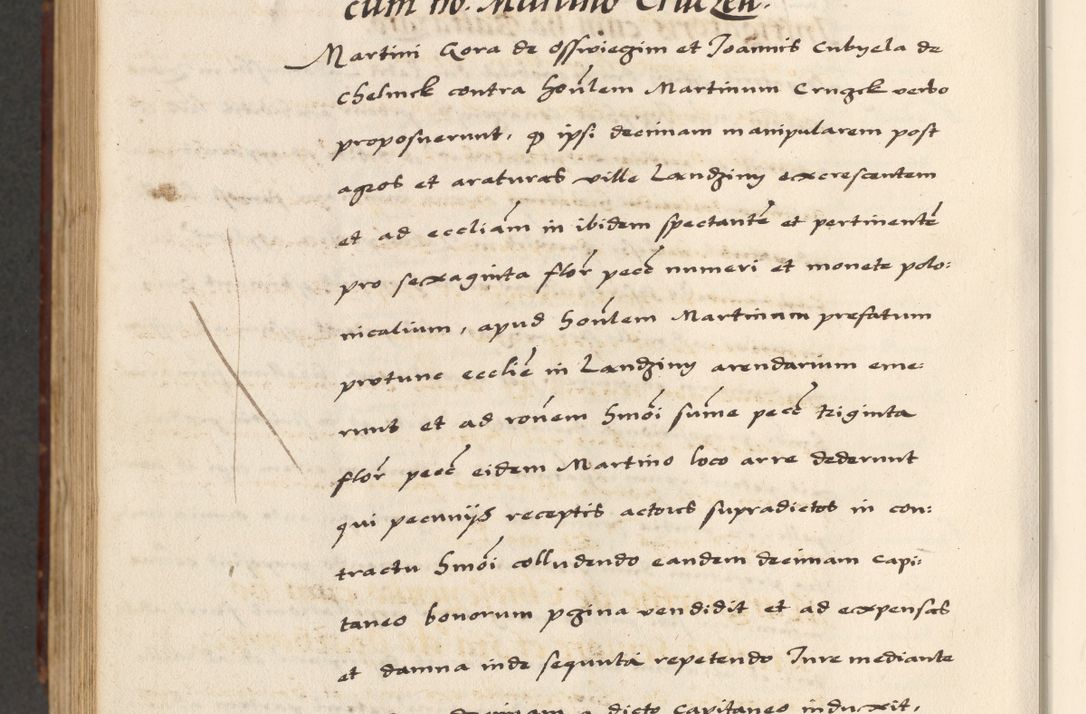 cum no. Martino Cruczek.
Martini Gora de Osswieczim et Joannis Cubyela de
Chelmek contra honlem Martinum Crugck verbo
proposuerunt, q ipsi decimam manipularem post
agros et araturas ville Landziny excrescentem
et ad eccliam in ibidem spectante et pertinente
pro sexaginta flor pecc numeri et monete polo:
nicalium, apud honlem Martinum prefatum
protunc ecclie in Landziny arendarium eme:
runt et ad ronem hmoi sume pecc triginta
flor pecc eidem Martino loco arre dederunt
qui pecunijs receptis actores supradictos in con:
tractu hmoi colludendo eandem decimam Capi:
taneo bonorum pgina vendidit et ad expensas
et damna inde sequuta repetendo Jure mediante
decimam a dicto Capitaneo induxit,